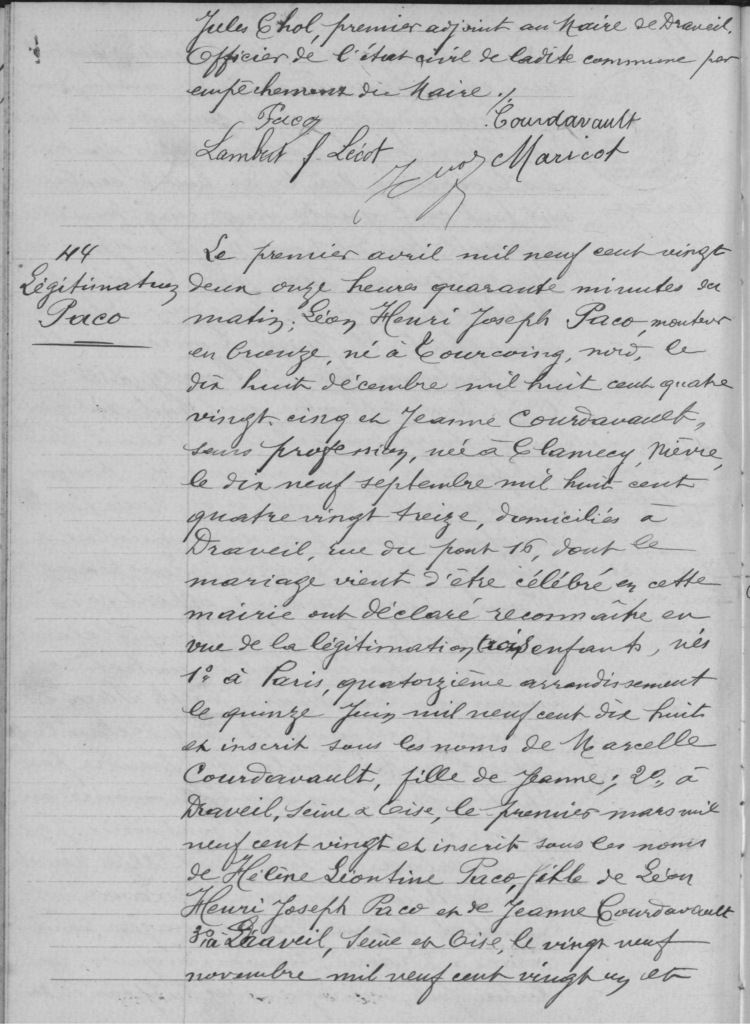 Jules Chol, premier adjoint au Maire de Draveil,
Officier de l'état civil de ladite commune par
empêchement du Maire ./.
Paco Courdavault
Lambert f. Lécot Maricot
44
Légitimation
Paco
Le premier avril mil neuf cent vingt
deux onze heures quarante minutes du
matin; Léon Henri Joseph Paco, monteur
en bronze, né à Tourcoing, nord, le
dix huit décembre mil huit cent quatre
vingt-cinq et Jeanne Courdavault,
sans profession, née à Clamecy, Nièvre,
le dix neuf septembre mil huit cent
quatre vingt treize, domiciliés à
Draveil, rue du pont 16, dont le
mariage vient d'être célébré en cette
mairie ont déclaré reconnaître en
vue de la légitimation trois enfants, nés
1º à Paris, quatorzième arrondissement
le quinze Juin mil neuf cent dix huit
et inscrit sous les noms de Marcelle
Courdavault, fille de Jeanne; 2º, à
Draveil, Seine & Oise, le premier mars mil
neuf cent vingt et inscrit sous les noms
de Hélène Léontine Paco, fille de Léon
Henri Joseph Paco et de Jeanne Courdavault
3º à Draveil, Seine et Oise, le vingt neuf
novembre mil neuf cent vingt un et